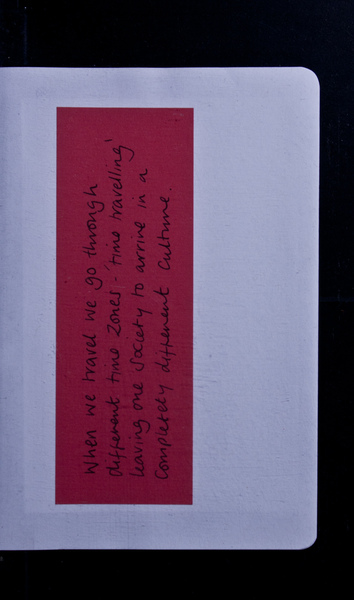 When we travel we go through
different time zones - 'time travelling'
leaving one society to arrive in a
completely different culture.